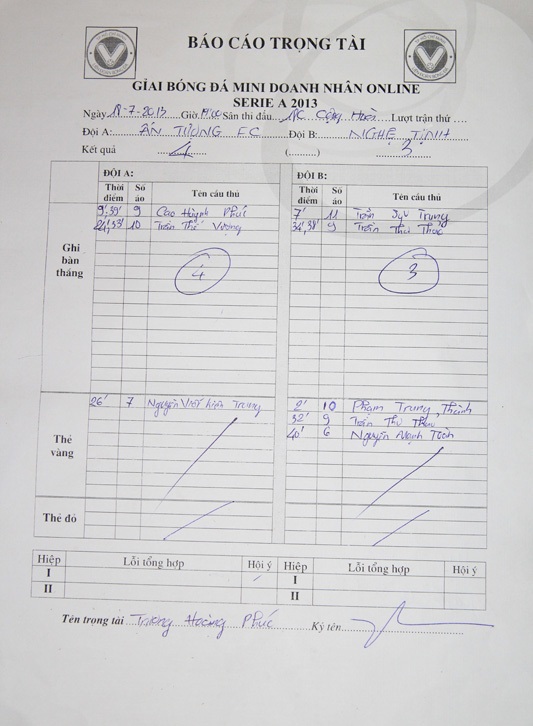 BÁO CÁO TRỌNG TÀI
GIẢI BÓNG ĐÁ MINI DOANH NHÂN ONLINE
SERIE A 2013
Ngày 18-7-2013 Giờ Sân thi đấu Cộng Hoà Lượt trận thứ ....
Đội A: ẤN TƯỢNG FC Đội B: NGHỆ TỊNH
Kết quả 4 (..........) 3
ĐỘI A: ĐỘI B:
Thời điểm Số áo Tên cầu thủ Thời điểm Số áo Tên cầu thủ
Ghi bàn thắng
9',39' 9 Cao Huỳnh Phúc 7' 11 Trần Trung
10 Trần Thế Vương 34',38' 9 Trần Thu
4 3
Thẻ vàng
26' 7 Nguyễn Viết Trung 2' 10 Phạm Trung Thành
32' 9 Trần Thu
40' 6 Nguyễn Mạnh Toàn
Thẻ đỏ
Hiệp Lỗi tổng hợp Hội ý Hiệp Lỗi tổng hợp Hội ý
I I
II II
Tên trọng tài Trương Hoàng Phúc Ký tên